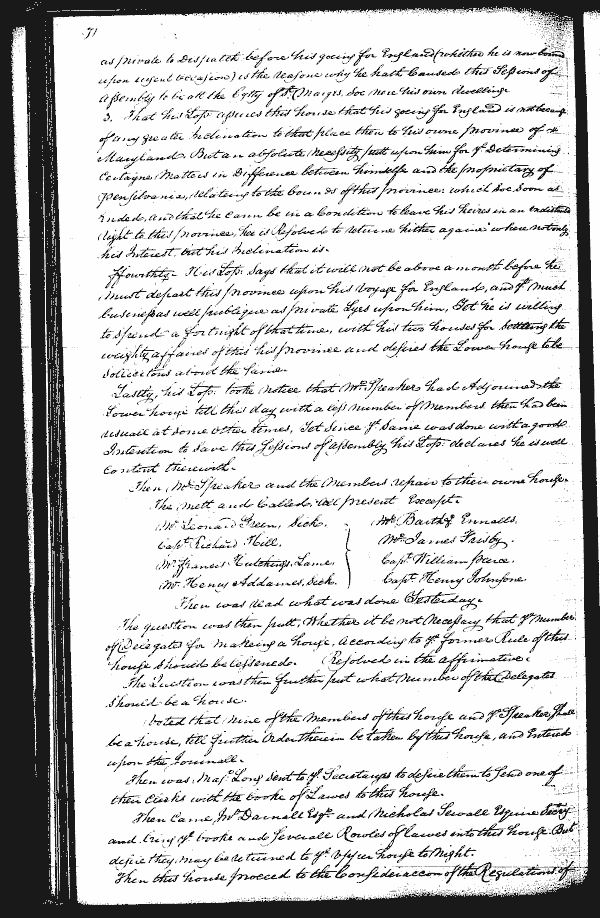 71
as private to Dispatch before his going for England (whither he is now bound
upon urgent occasion) is the reasone why he hath Caused this Sessions of
Assembly to be att the Citty of St. Maryes, soe nere his own dwelling.
3. That his Losp assures this house that his going for England is not because
of any greater Inclination to that place then to his owne province of
Maryland. But an absolute necessity putt upon him for ye Determining
Certayne Matters in Difference between himselfe and the proprietary of
Pensilvania, relateing to the bounds of this province: which soe soon as
Ended, and that he cann be in a Condition to leave his heires in an
right to this province, he is Resolved to returne hither againe where not only
his Interest, but his Inclination is.
ffowrthly- His Losp: Says that it will not be above a month before he
must depart this province upon his Voyage for England, and yt much
business as well publique as private Lyes upon him, Yet he is willing
to spend a fortnight of that time, with his two houses for Settling the
weighty affaires of this his province and desires the Lower house to be
solicitous about the same.
Lastly, his Losp: tooke notice that Mr. Speaker had Adjourned the
Lower house till this day with a less number of Members then had been
usuall at some other times, Yet Since ye Same was done with a good
Intention to Save this Sessions of Assembly his Losp: declares he is well
Content therewith.
Then Mr Speaker and the Members repair to their owne house.
The mett and Called, all present Except.
Mr Leonard Green, Sick. Mr Barthy. Ennalls.
Capt Richard Hill. Mr James Frisby.
Mr Francis Hutchings, Lame. Capt William Pearce.
Mr. Henry Addames, Sick. Capt Henry Johnsone
Then was read what was done Yesterday.
The question was then putt, Whether it be not Necessary that ye Number
of Delegates for making a house, According to ye former Rule of this
house should be lessened. Resolved in the affirmative.
The Question was then further put what Number of the Delegates
should be a house.
Voted that nine of the Members of this house and ye Speaker, shall
be a house, till further Order therein be taken by this house, and Entered
upon the Journall.
Then was Majr Long sent to ye Secretarys to desire them to Send one of
their Clerks with the booke of Lawes to this house.
Then Came Jno Darnall Esqr. and Nicholas Sewall Esquire Secrys
and bring ye booke and severall Rowles of Lawes into this house But
desire they may be returned to ye upper house to Night.
Then this house proceed to the Consideraccon of the Regulations of